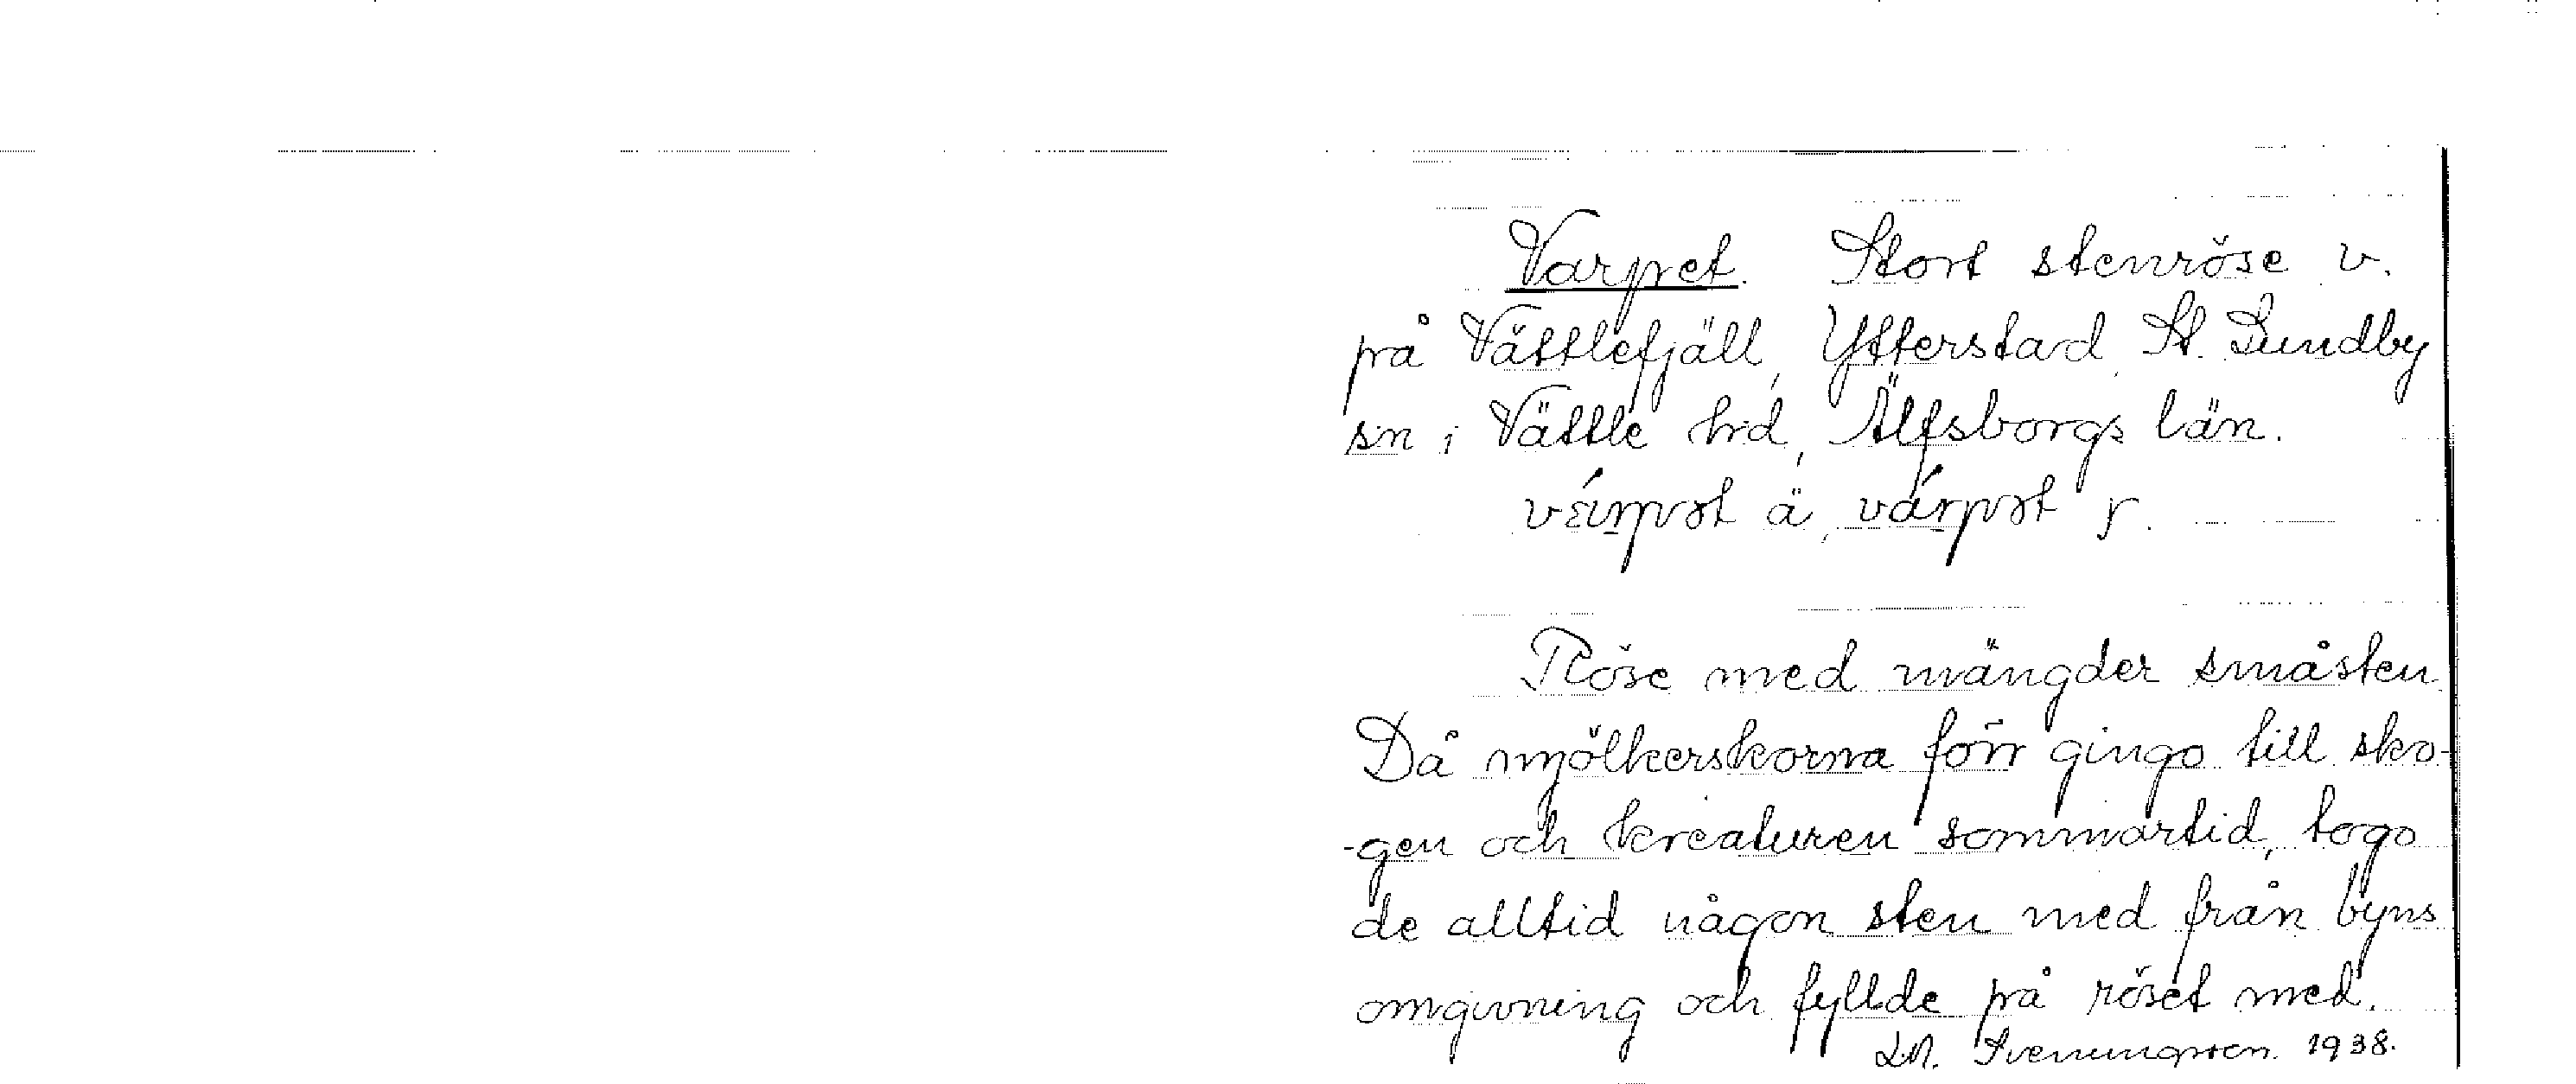 Varpet. Stort stenröse v.
på Vättlefjäll, Ytterstad, St. Lundby
sn i Vättle hd, Älfsborgs län.
ä, r.
Röse med mängder småsten
Då mjölkerskorna förr gingo till sko-
-gen och kreaturen sommartid, togo
de alltid någon sten med från byns
omgivning och fyllde på röset med.
Svenungsson. 1938.